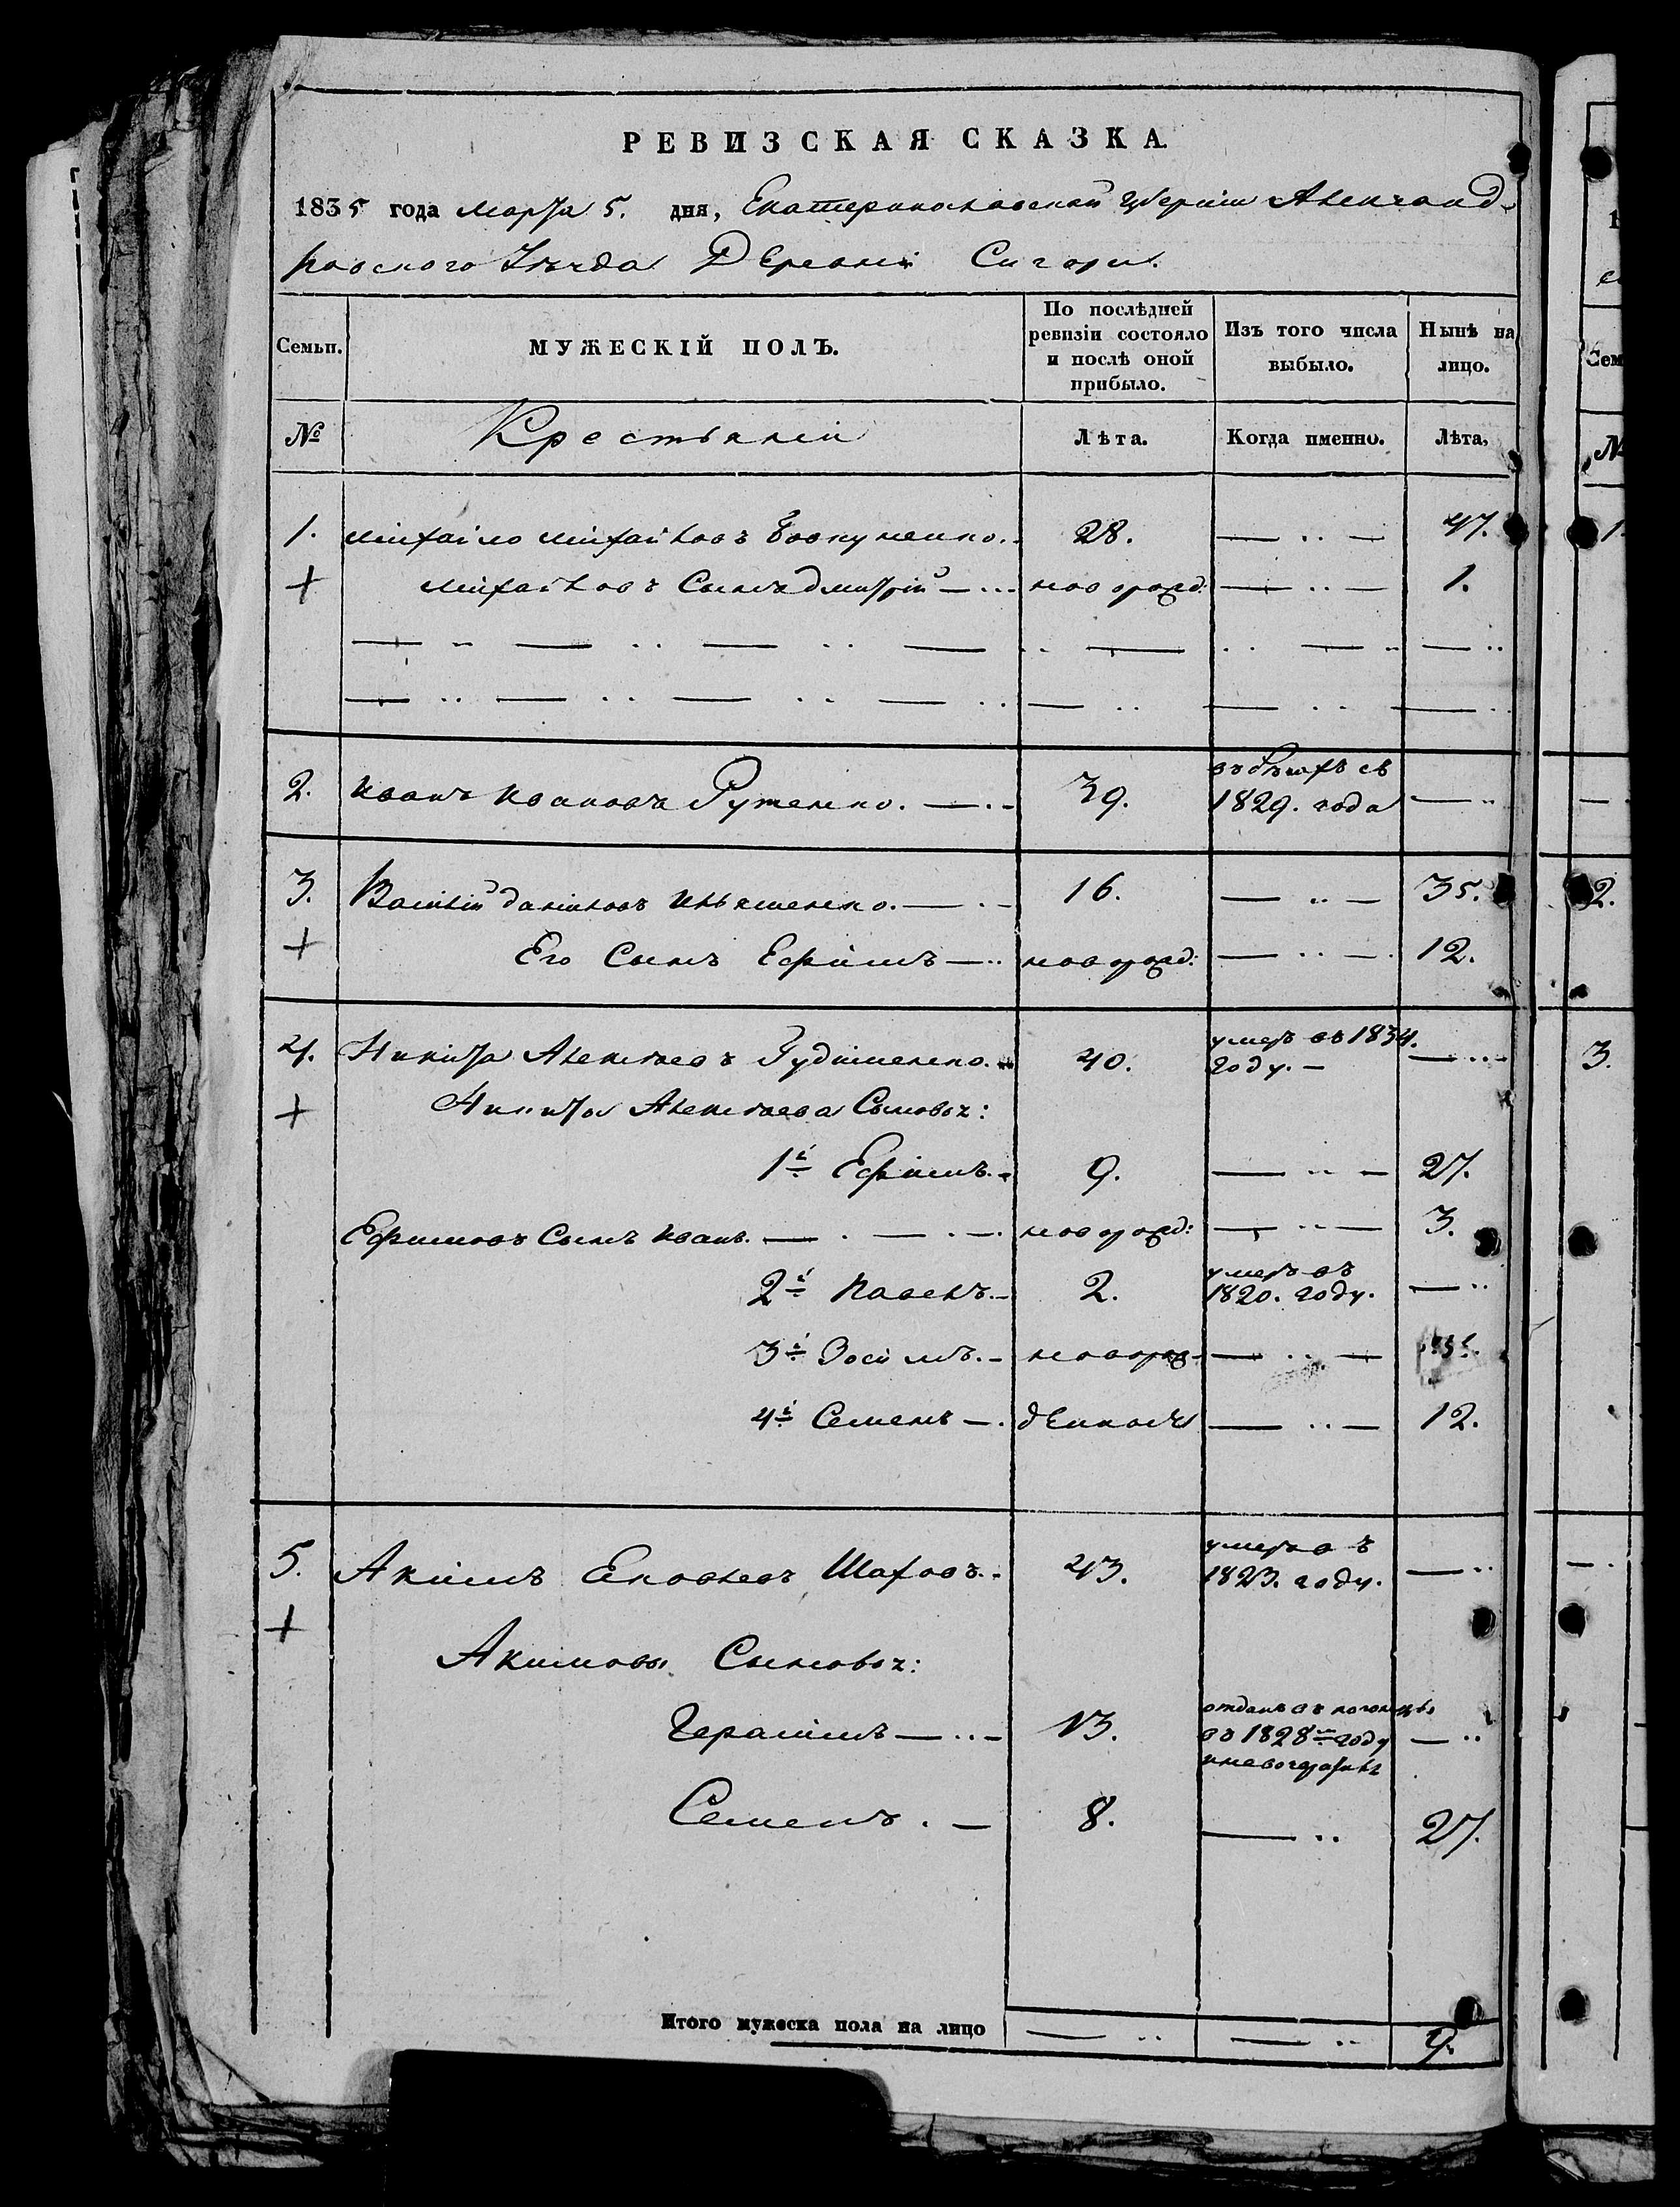 РЕВИЗСКАЯ СКАЗКА
1835 года марта 5. дня, Екатеринославской губернии Александ-
ровского Уѣзда Деревни
Семьи.
МУЖЕСКІЙ ПОЛЪ.
По послѣдней ревизіи состояло и послѣ оной прибыло.
Изъ того числа выбыло.
Нынѣ на лицо.
№
Крестьяніи
Лѣта.
Когда именно.
Лѣта,
1. Михайло Михайловъ 28. — .. — 47.
+ Михайловъ Сынъ дмитрій — ... новорожд: — .. — 1.
2. Иванъ Ивановъ Руженко. — . – 39. въ бѣгахъ съ 1829. года — ..
3. Василій даніловъ Ильяшенко. — . – 16. — .. — 35.
+ Его Сынъ Ефимъ — .. новорожд: — .. — 12.
4. Никита Алексѣевъ 40. умеръ въ 1834. году. – — ..
+ Никита Алексѣева Сыновья:
1й Ефімъ. - 9. — .. — 27.
Ефимовъ Сынъ Иванъ. — . — . — новорожд: — .. — 3.
2й Павелъ. – 2. умеръ въ 1820. году. — ..
3й Зосимъ. – новорож- — .. —
4й Семенъ — . денныя — .. — 12.
5. Акимъ Яковлевъ Шаховъ. - 43. умеръ въ 1823. году. — ..
+
Акимовы Сыновья:
Герасимъ — .. – 13. отданъ въ въ 1828м году — ..
Семенъ . — 8. — .. 27.
Итого мужеска пола на лицо — .. — .. 9.